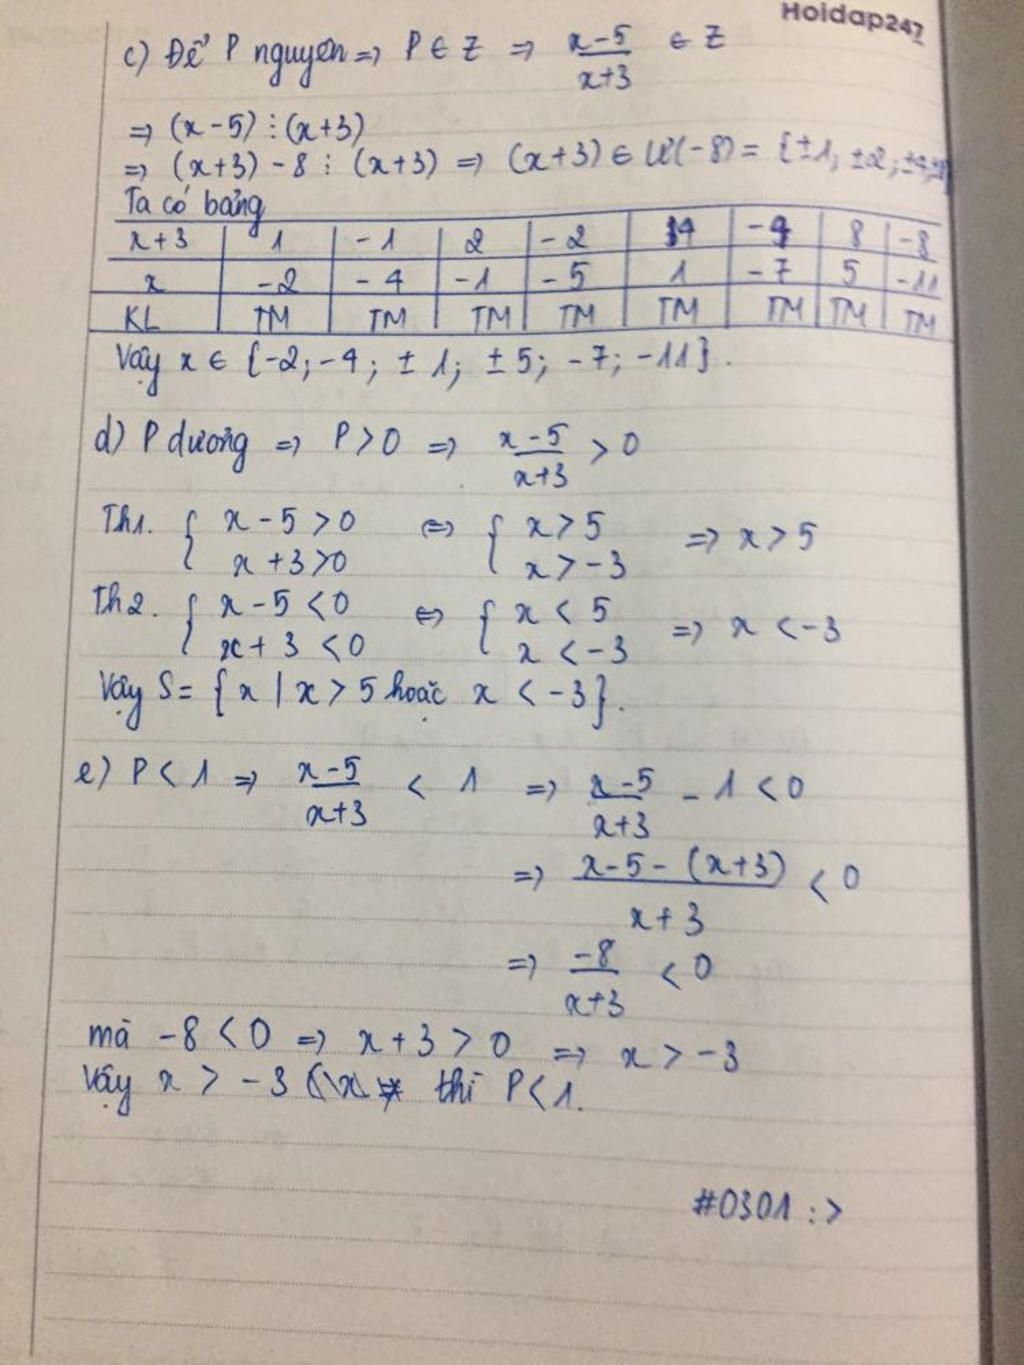 Hoidap247
c) Để P nguyên => P ∈ Z => (x-5)/(x+3) ∈ Z
=> (x-5) ⋮ (x+3)
=> (x+3) - 8 ⋮ (x+3) => (x+3) ∈ Ư(-8) = {±1; ±2; ±4; ±8}
Ta có bảng
x+3 | 1 | -1 | 2 | -2 | 4 | -4 | 8 | -8
x | -2 | -4 | -1 | -5 | 1 | -7 | 5 | -11
KL | TM | TM | TM | TM | TM | TM | TM | TM
Vậy x ∈ {-2; -4; ±1; ±5; -7; -11}.
d) P dương => P > 0 => (x-5)/(x+3) > 0
Th1. { x - 5 > 0 ; x + 3 > 0 <=> { x > 5 ; x > -3 => x > 5
Th2. { x - 5 < 0 ; x + 3 < 0 <=> { x < 5 ; x < -3 => x < -3
Vậy S = {x | x > 5 hoặc x < -3}.
e) P < 1 => (x-5)/(x+3) < 1 => (x-5)/(x+3) - 1 < 0
=> (x-5-(x+3))/(x+3) < 0
=> -8/(x+3) < 0
mà -8 < 0 => x + 3 > 0 => x > -3
Vậy x > -3 thì P < 1.
#0301 :>